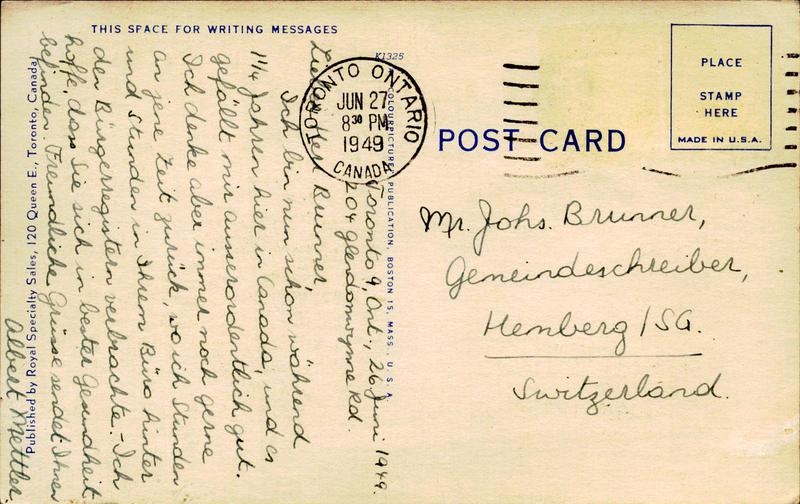 THIS SPACE FOR WRITING MESSAGES
K1325
TORONTO ONTARIO
JUN 27
8 30 PM
1949
CANADA
POST CARD
PLACE
STAMP
HERE
MADE IN U.S.A.
Toronto 9, Ont., 26 Juni 1949.
204 Glendonwynne Rd.
Herr Brunner,
Ich bin nun schon während
1 1/4 Jahren hier in Canada, und es
gefällt mir ausserordentlich gut.
Ich denke aber immer noch gerne
an jene Zeit zurück, wo ich Stunden
und Stunden in Ihrem Büro hinter
den Bürgerregistern verbrachte. - Ich
hoffe, dass Sie sich in bester Gesundheit
befinden. Freundliche Grüsse sendet Ihnen
Albert Mettler.
Mr. Johs. Brunner,
Gemeindeschreiber,
Hemberg / SG.
Switzerland.
COLOURPICTURE PUBLICATION, BOSTON 15, MASS., U.S.A.
Published by Royal Specialty Sales, 120 Queen E., Toronto, Canada